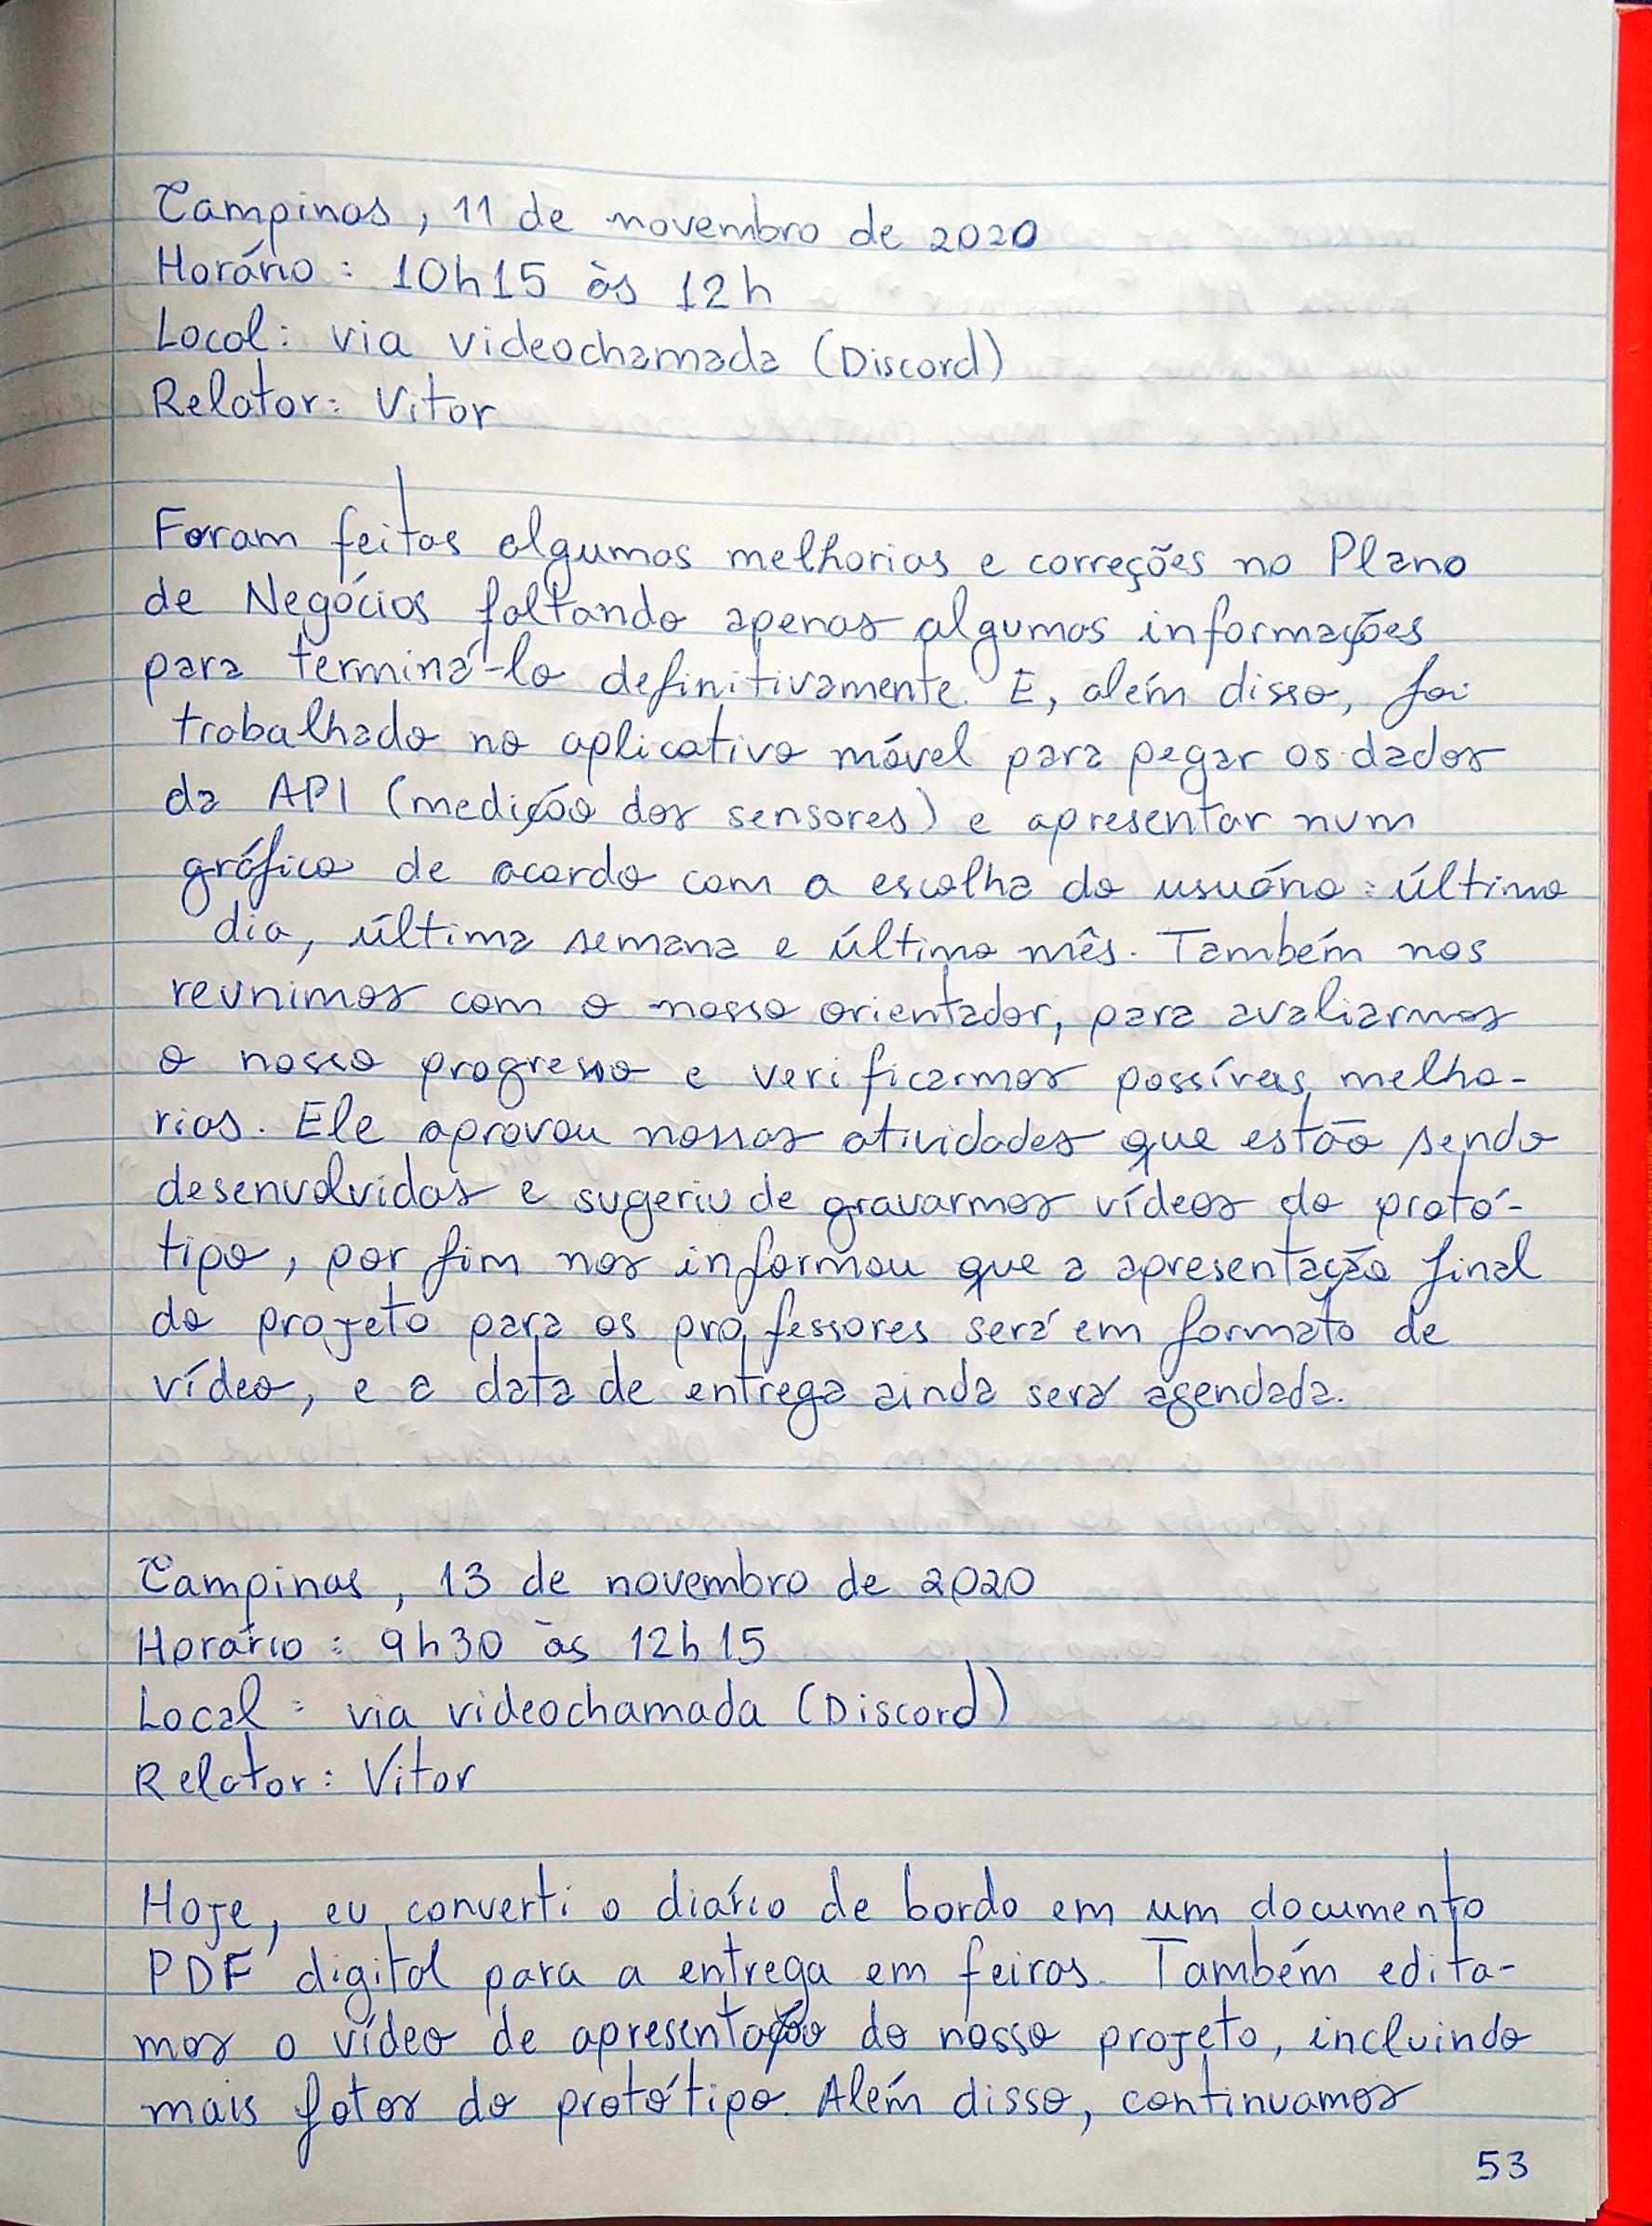 Campinas, 11 de novembro de 2020
Horário: 10h15 às 12h
Local: via videochamada (Discord)
Relator: Vitor
Foram feitas algumas melhorias e correções no Plano
de Negócios faltando apenas algumas informações
para terminá-lo definitivamente. E, além disso, foi
trabalhado no aplicativo móvel para pegar os dados
da API (medição dos sensores) e apresentar num
gráfico de acordo com a escolha do usuário: último
dia, última semana e último mês. Também nos
reunimos com o nosso orientador, para avaliarmos
o nosso progresso e verificarmos possíveis melho-
rias. Ele aprovou nossas atividades que estão sendo
desenvolvidas e sugeriu de gravarmos vídeos do protó-
tipo, por fim nos informou que a apresentação final
do projeto para os professores será em formato de
vídeo, e a data de entrega ainda será agendada.
Campinas, 13 de novembro de 2020
Horário: 9h30 às 12h15
Local: via videochamada (Discord)
Relator: Vitor
Hoje, eu converti o diário de bordo em um documento
PDF digital para a entrega em feiras. Também edita-
mos o vídeo de apresentação do nosso projeto, incluindo
mais fotos do protótipo. Além disso, continuamos
53